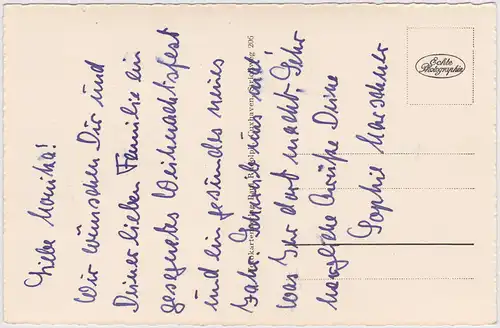 Liebe Monika!
Wir wünschen Dir und
Deiner lieben Familie ein
gesegnetes Weihnachtsfest
und ein gesundes neues
Jahr. Schreib uns mal
was Ihr dort macht. Sehr
herzliche Grüße Deine
Sophie
Echte
Photographie
Cuxhaven,
206